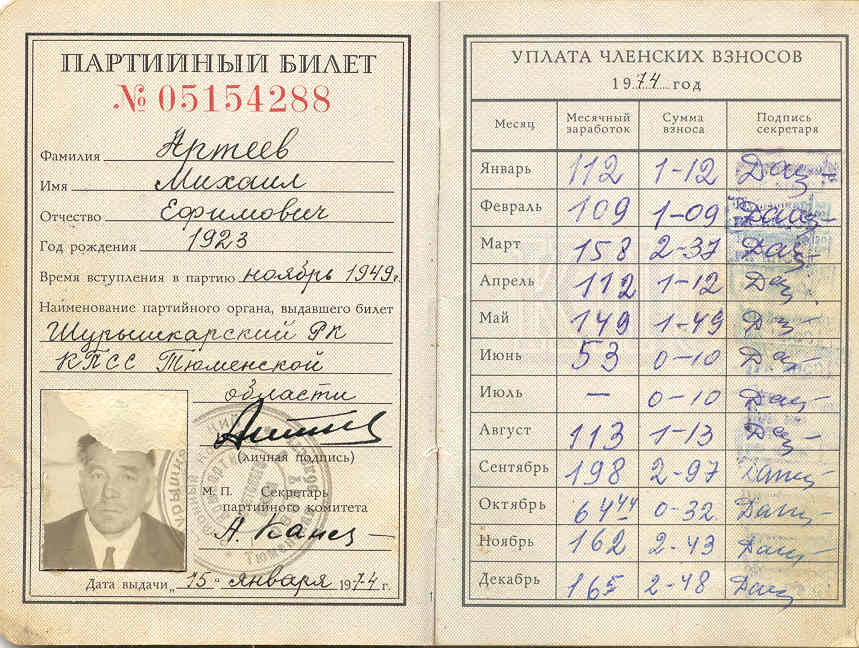 ПАРТИЙНЫЙ БИЛЕТ
№ 05154288
Фамилия Артеев
Имя Михаил
Отчество Ефимович
Год рождения 1923
Время вступления в партию ноябрь 1949 г.
Наименование партийного органа, выдавшего билет
Шурышкарский РК
КПСС Тюменской
области
(личная подпись)
М. П. Секретарь
партийного комитета
Дата выдачи „15“ января 1974 г.
УПЛАТА ЧЛЕНСКИХ ВЗНОСОВ
1974 год
Месяц Месячный заработок Сумма взноса Подпись секретаря
Январь 112 1-12
Февраль 109 1-09
Март 158 2-37
Апрель 112 1-12
Май 149 1-49
Июнь 53 0-10
Июль — 0-10
Август 113 1-13
Сентябрь 198 2-97
Октябрь 64 44 0-32
Ноябрь 162 2-43
Декабрь 165 2-48